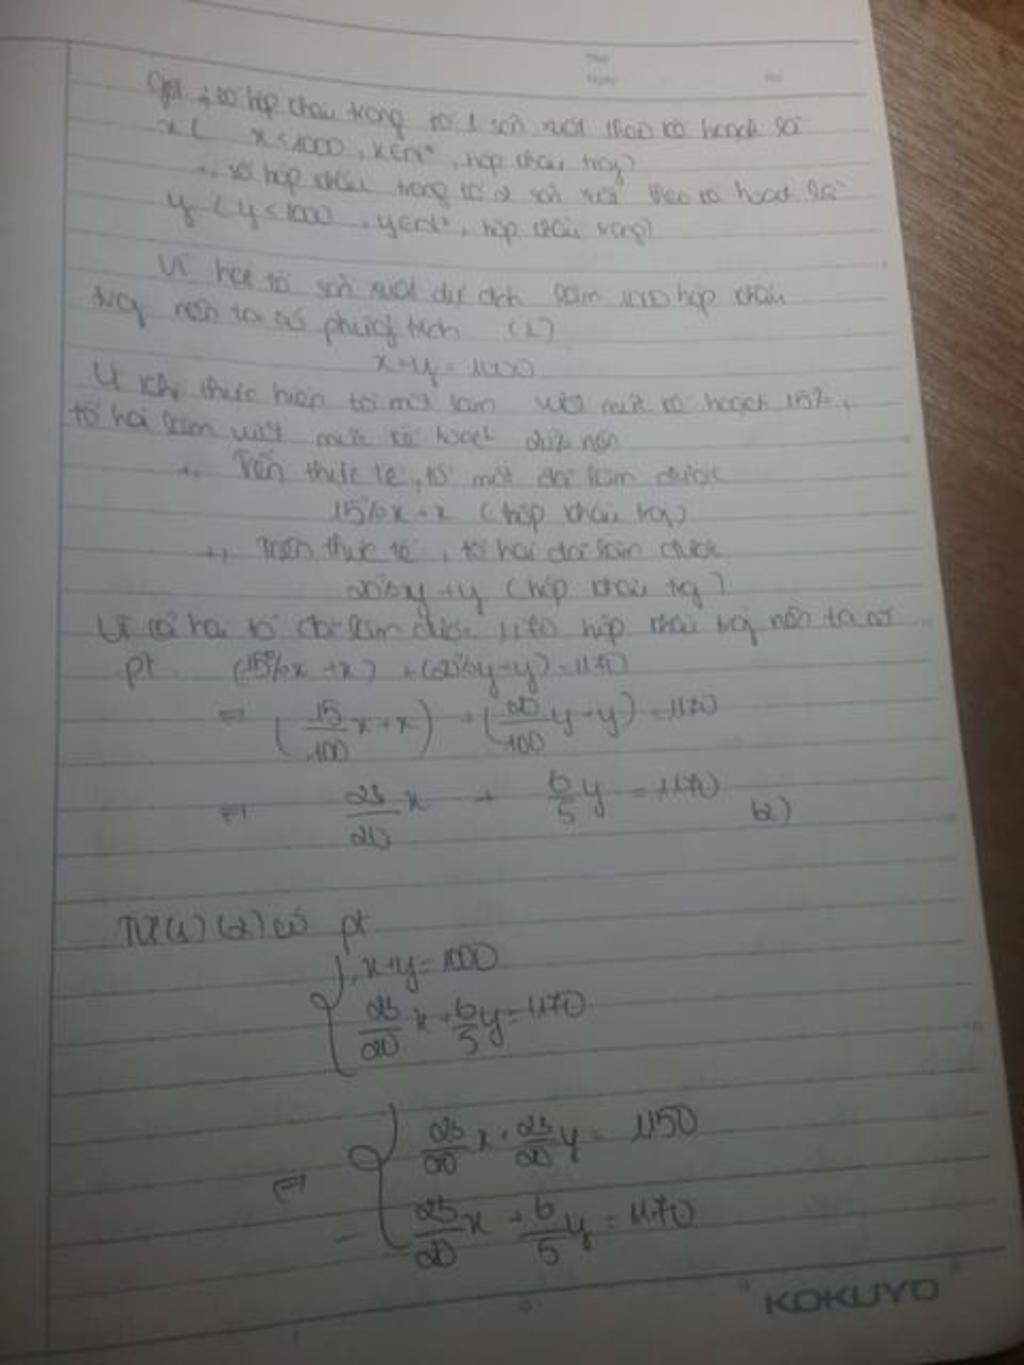 Gọi +, số hộp khẩu trang tổ 1 sản xuất theo kế hoạch là
x ( x < 1000, x ∈ N*, hộp khẩu trang)
+, số hộp khẩu trang tổ 2 sản xuất theo kế hoạch là
y ( y < 1000, y ∈ N*, hộp khẩu trang)
Vì hai tổ sản xuất dự định làm 1000 hộp khẩu
trg nên ta có phương trình (1)
x + y = 1000
Vì khi thực hiện tổ một làm vượt mức kế hoạch 15%,
tổ hai làm vượt mức kế hoạch 20% nên
+, Trên thực tế, tổ một đã làm được
15%x + x (hộp khẩu trg)
+, Trên thực tế, tổ hai đã làm được
20%y + y (hộp khẩu trg)
Vì cả hai tổ đã làm được 1170 hộp khẩu trg nên ta có
pt (15%x + x) + (20%y + y) = 1170
⇔ (15/100 x + x) + (20/100 y + y) = 1170
⇔ 23/20 x + 6/5 y = 1170 (2)
Từ (1) (2) có pt
{ x + y = 1000
23/20 x + 6/5 y = 1170
⇔ { 23/20 x + 23/20 y = 1150
23/20 x + 6/5 y = 1170
KOKUYO